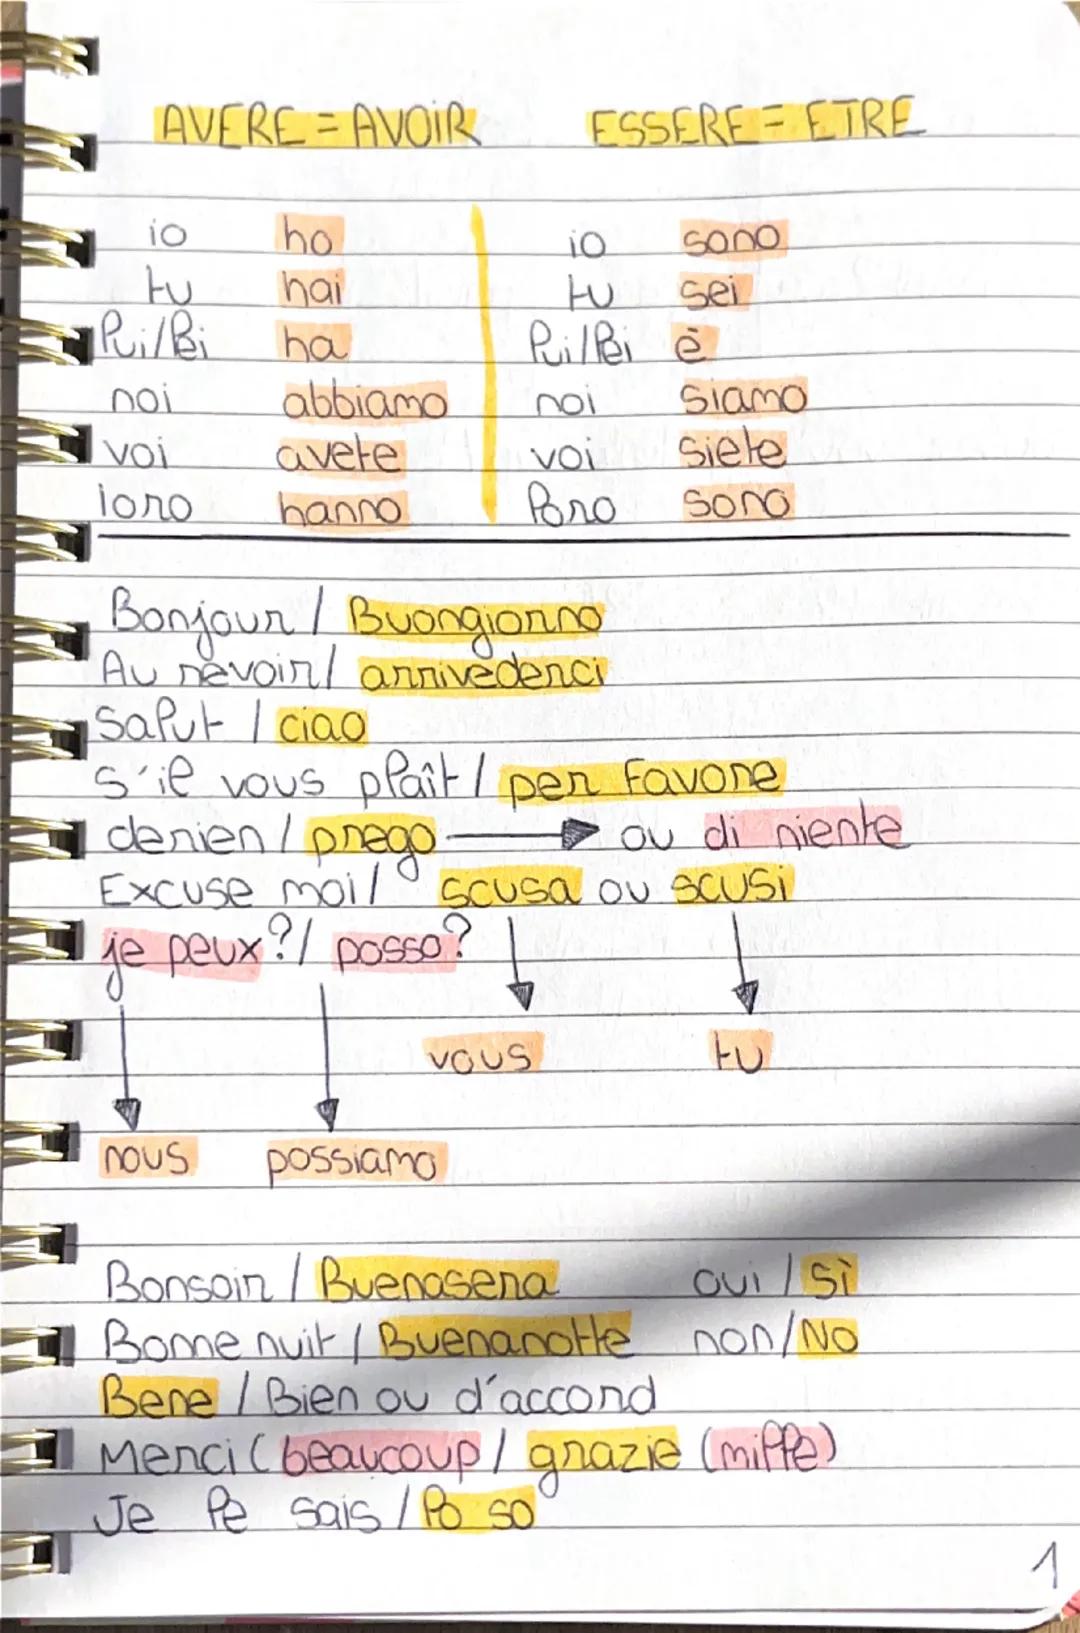 AVERE = AVOIR ESSERE = ETRE
io ho io sono
tu hai tu sei
lui/lei ha lui/lei è
noi abbiamo noi siamo
voi avete voi siete
loro hanno loro sono
Bonjour / Buongiorno
Au revoir / arrivederci
Salut / ciao
s'il vous plaît / per favore
derien / prego → ou di niente
Excuse moi / scusa ou scusi
je peux? / posso?
vous tu
nous possiamo
Bonsoir / Buenasera oui / sì
Bonne nuit / Buenanotte non / NO
Bene / Bien ou d'accord
Merci (beaucoup / grazie (mille)
Je le sais / lo so
1